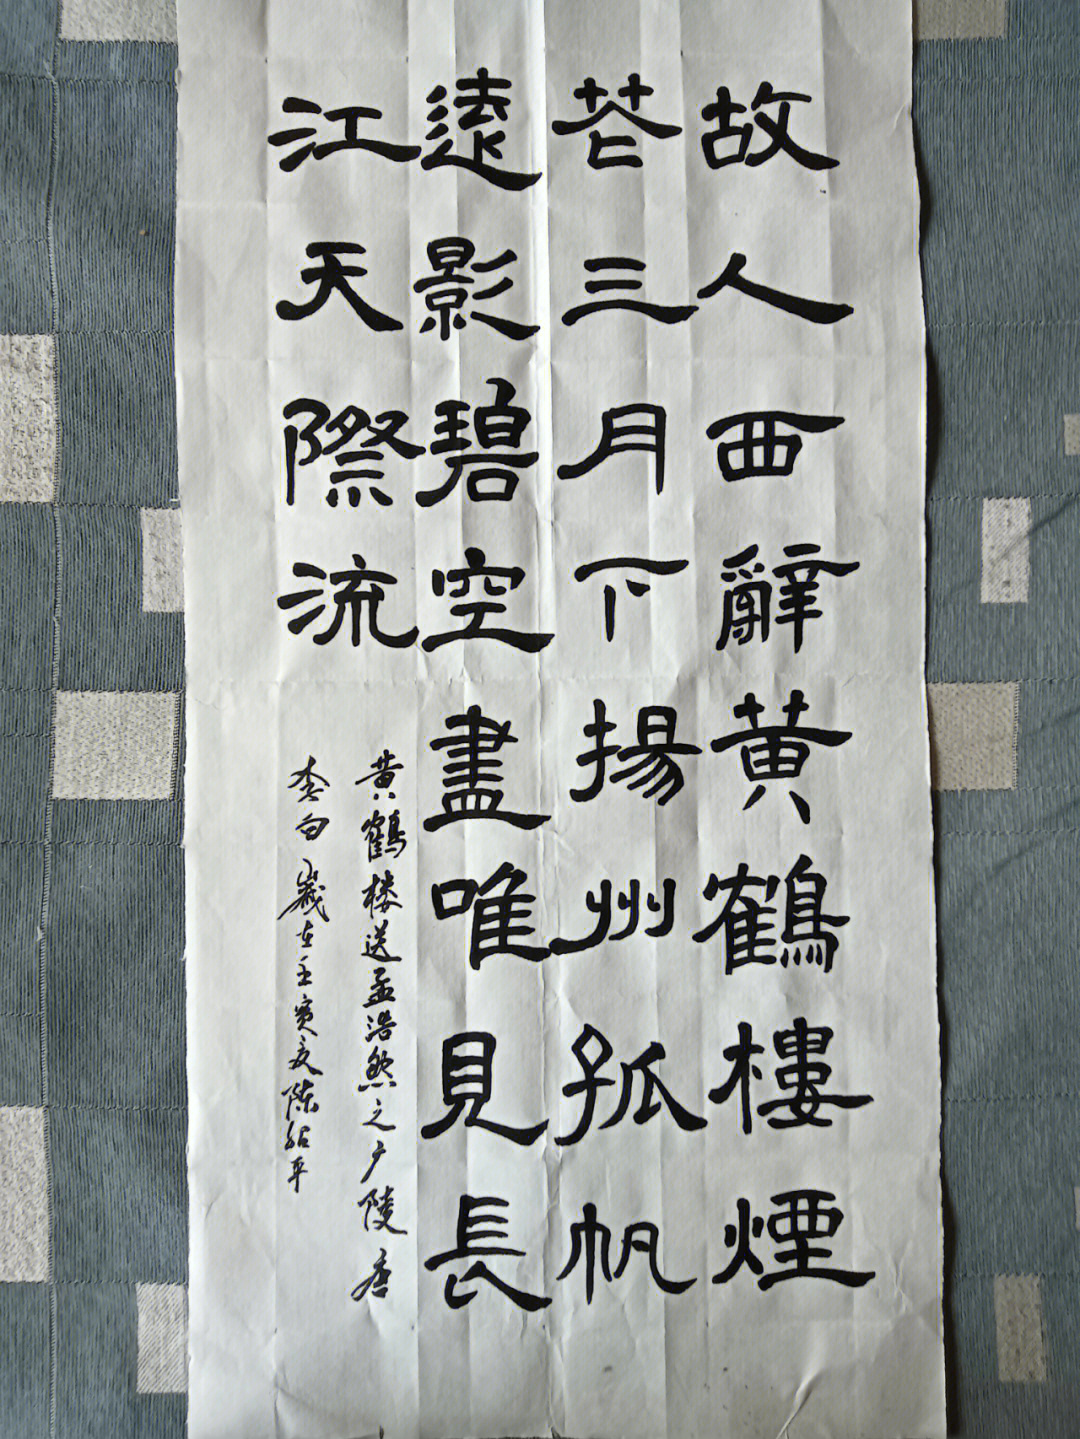 故人西辭黄鶴樓煙
花三月下揚州孤帆
遠影碧空盡唯見長
江天際流
黄鶴楼送孟浩然之广陵 唐
李白 歲在壬寅夏陈紹平